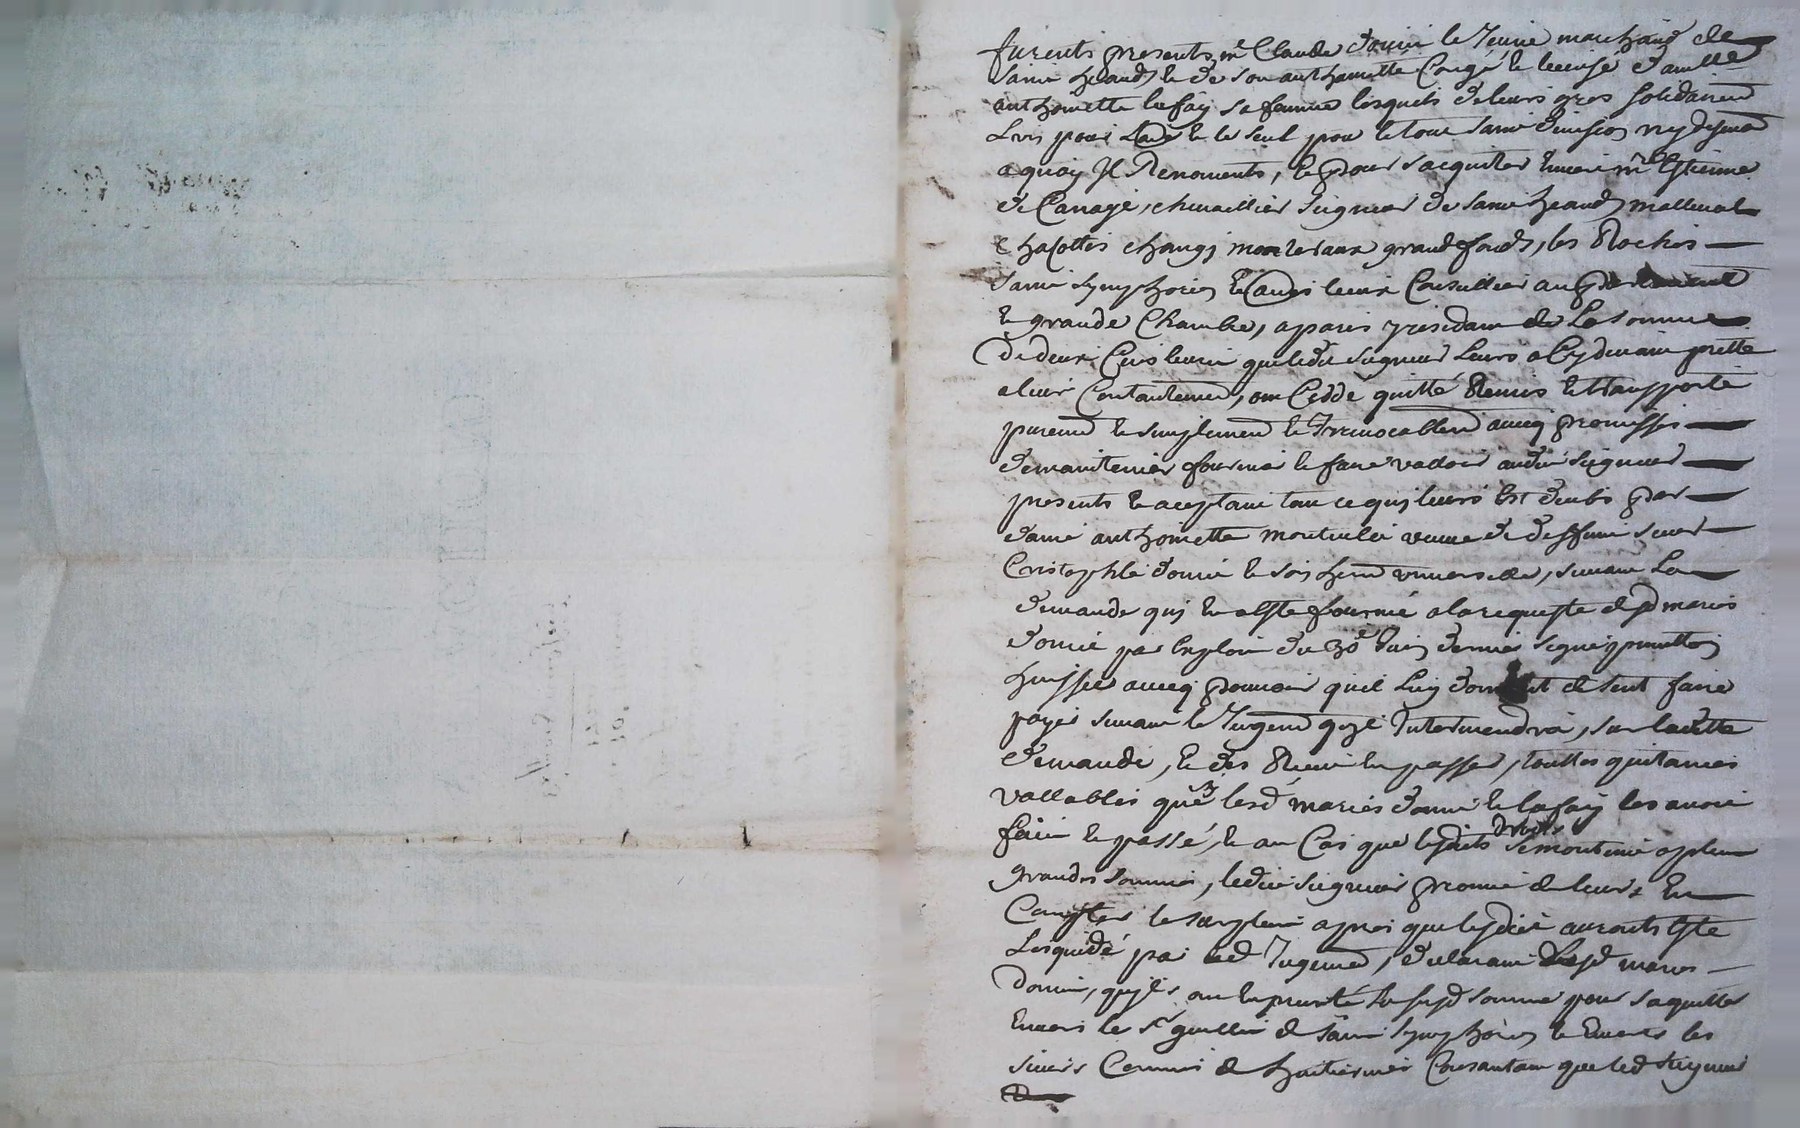 furents presents mr Claude Douin le Jeune marchand de
Saint heand, & de son authoritte Congé & licence damlle
anthoinette lafay sa femme lesquels de leurs gres solidairemt
Lun pour Lautre & le seul pour le tout sans division ny dismen
a quoy Jl Renoncents, & pour sacquiter Envers mre Estienne
de Canaye, chevaillier seigneur de Saint heand, malleval
Chasottes changy montervaux grandfonds, les Roches
Saint Symphorien & autres lieux Conseillier au parlement
& grande Chambre, a paris presidant de La somme
de deux Cens livres que ledit seigneur Leurs a Cydevant prette
a leur Contantement, ont Ceddé quitté Remis & transporté
puremt & simplement & Jrrevocablemt avecq promisses
de maintenir fournir & faire valloir audit seigneur
presents & aceptant tout ce quy leurs Est deubs par
dame anthoinette veuve de deffunt sieur
Cristophle Douin & son herit universelle, suivant La
demande quy En a Este fournie a la requeste desd maries
Douin par Exploit du 30e Juin dernier signé
huissier avecq pouvoir quil Luy donnent de sent faire
payer suivant le Jugemt quy Jnterviendra, sur laditte
demande, & des Receu En passer, touttes quitances
vallables que lesd mariés Douin & lafay les avoir
fait & passé, & au Cas que lesdits droits se montent a plus
grandes sommes, ledit seigneur promet de leurs En
Compter le surplus apres que lesdits auronts Este
Liquidé par led Jugemt, declarant Lesd maries
Douin, quils ont Emprunté La susd somme pour saquitter
Envers le Sr guillin de Saint Symphorien & Envers les
sieurs Commis de Consantant que led seigneur